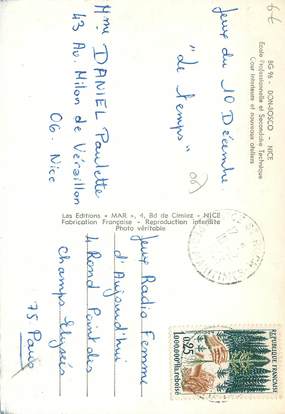 66
BG 96 - DON-BOSCO - NICE
Ecole Professionnelle et Secondaire Technique
Cour intérieure et nouveaux ateliers
Jeux du 10 Décembre
"Le Temps"
Mme DANIEL Paulette
43 Av. Milon de Véraillon
06. Nice
Les Editions « MAR », 4, Bd de Cimiez - NICE
Fabrication Française - Reproduction interdite
Photo véritable
REPUBLIQUE FRANCAISE
0,25
1.000.000e ha reboisé
Jeux Radio Femme
d'Aujourd'hui
4 Rond Point des
Champs Elysées
75 Paris